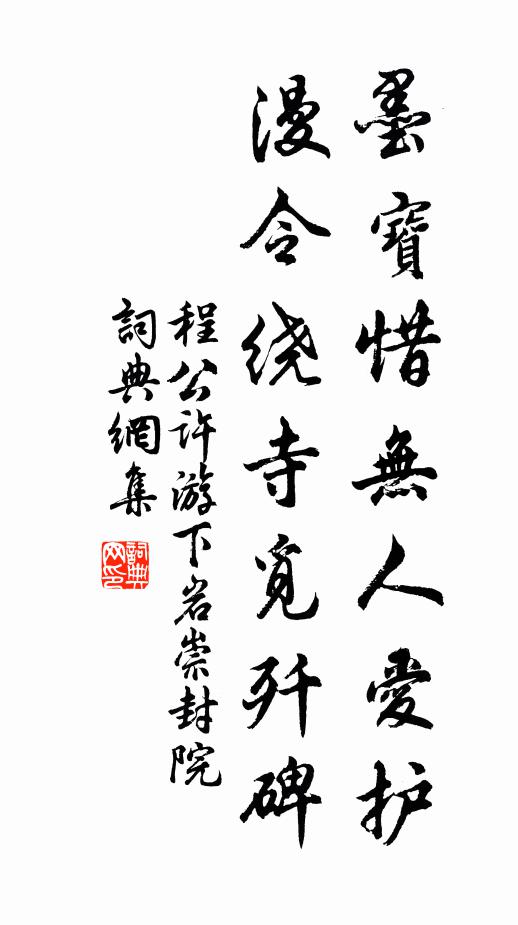 墨寶惜無人愛护
漫令绕寺覓歼碑
程公许游下岩崇封院
詞典網集
詞典網印